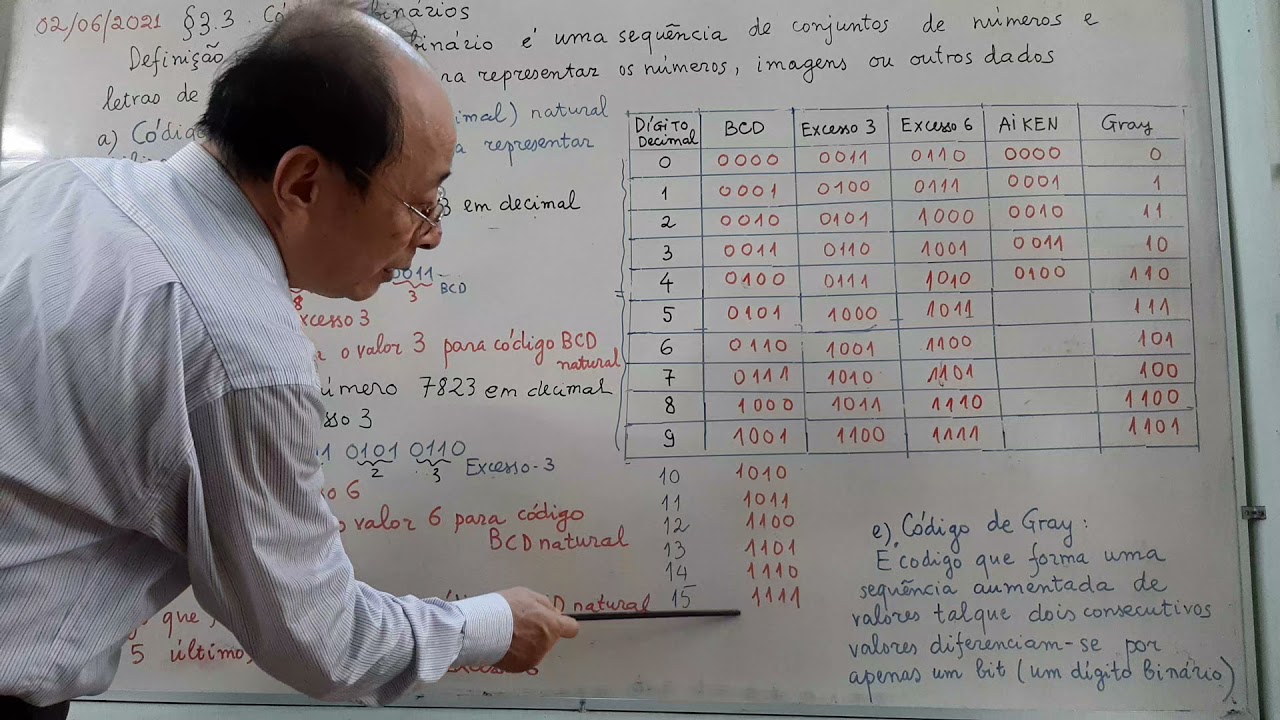 02/06/2021 §3.3. binários
Definição binário é uma sequência de conjuntos de números e
letras de representar os números, imagens ou outros dados
a) natural
representar
em decimal
0011
3 BCD
8
3
o valor 3 para código BCD
natural
7823 em decimal
3
0101 0110
2 3 Excesso-3
6
valor 6 para código
BCD natural
natural
que
5 último
Dígito Decimal BCD Excesso 3 Excesso 6 AiKEN Gray
0 0000 0011 0110 0000 0
1 0001 0100 0111 0001 1
2 0010 0101 1000 0010 11
3 0011 0110 1001 0011 10
4 0100 0111 1010 0100 110
5 0101 1000 1011 111
6 0110 1001 1100 101
7 0111 1010 1101 100
8 1000 1011 1110 1100
9 1001 1100 1111 1101
10 1010
11 1011
12 1100
13 1101
14 1110
15 1111
e) Código de Gray:
É codigo que forma uma
sequência aumentada de
valores tal que dois consecutivos
valores diferenciam-se por
apenas um bit (um dígito binário)